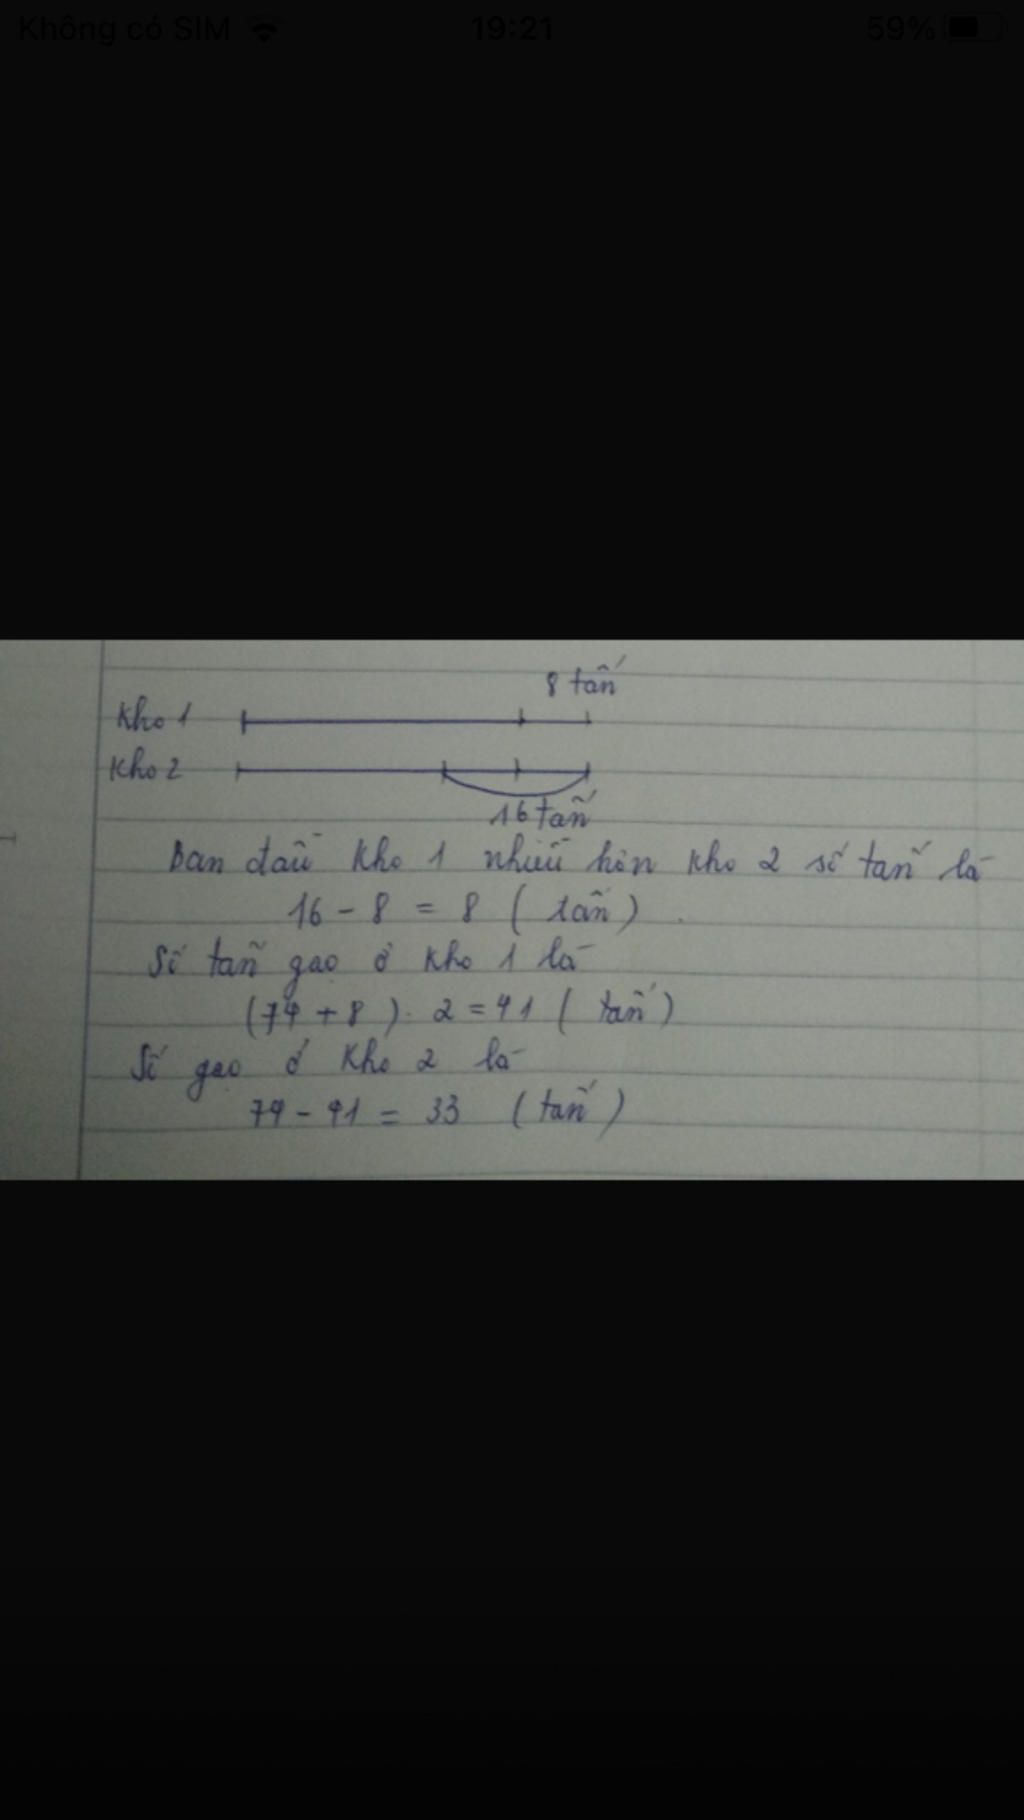 Không có SIM 19:21 59%
8 tấn
Kho 1
Kho 2
16 tấn
Ban đầu kho 1 nhiều hơn kho 2 số tấn là
16 - 8 = 8 ( tấn )
Số tấn gạo ở kho 1 là
(74 + 8 ) : 2 = 41 ( tấn )
Số gạo ở kho 2 là
74 - 41 = 33 ( tấn )